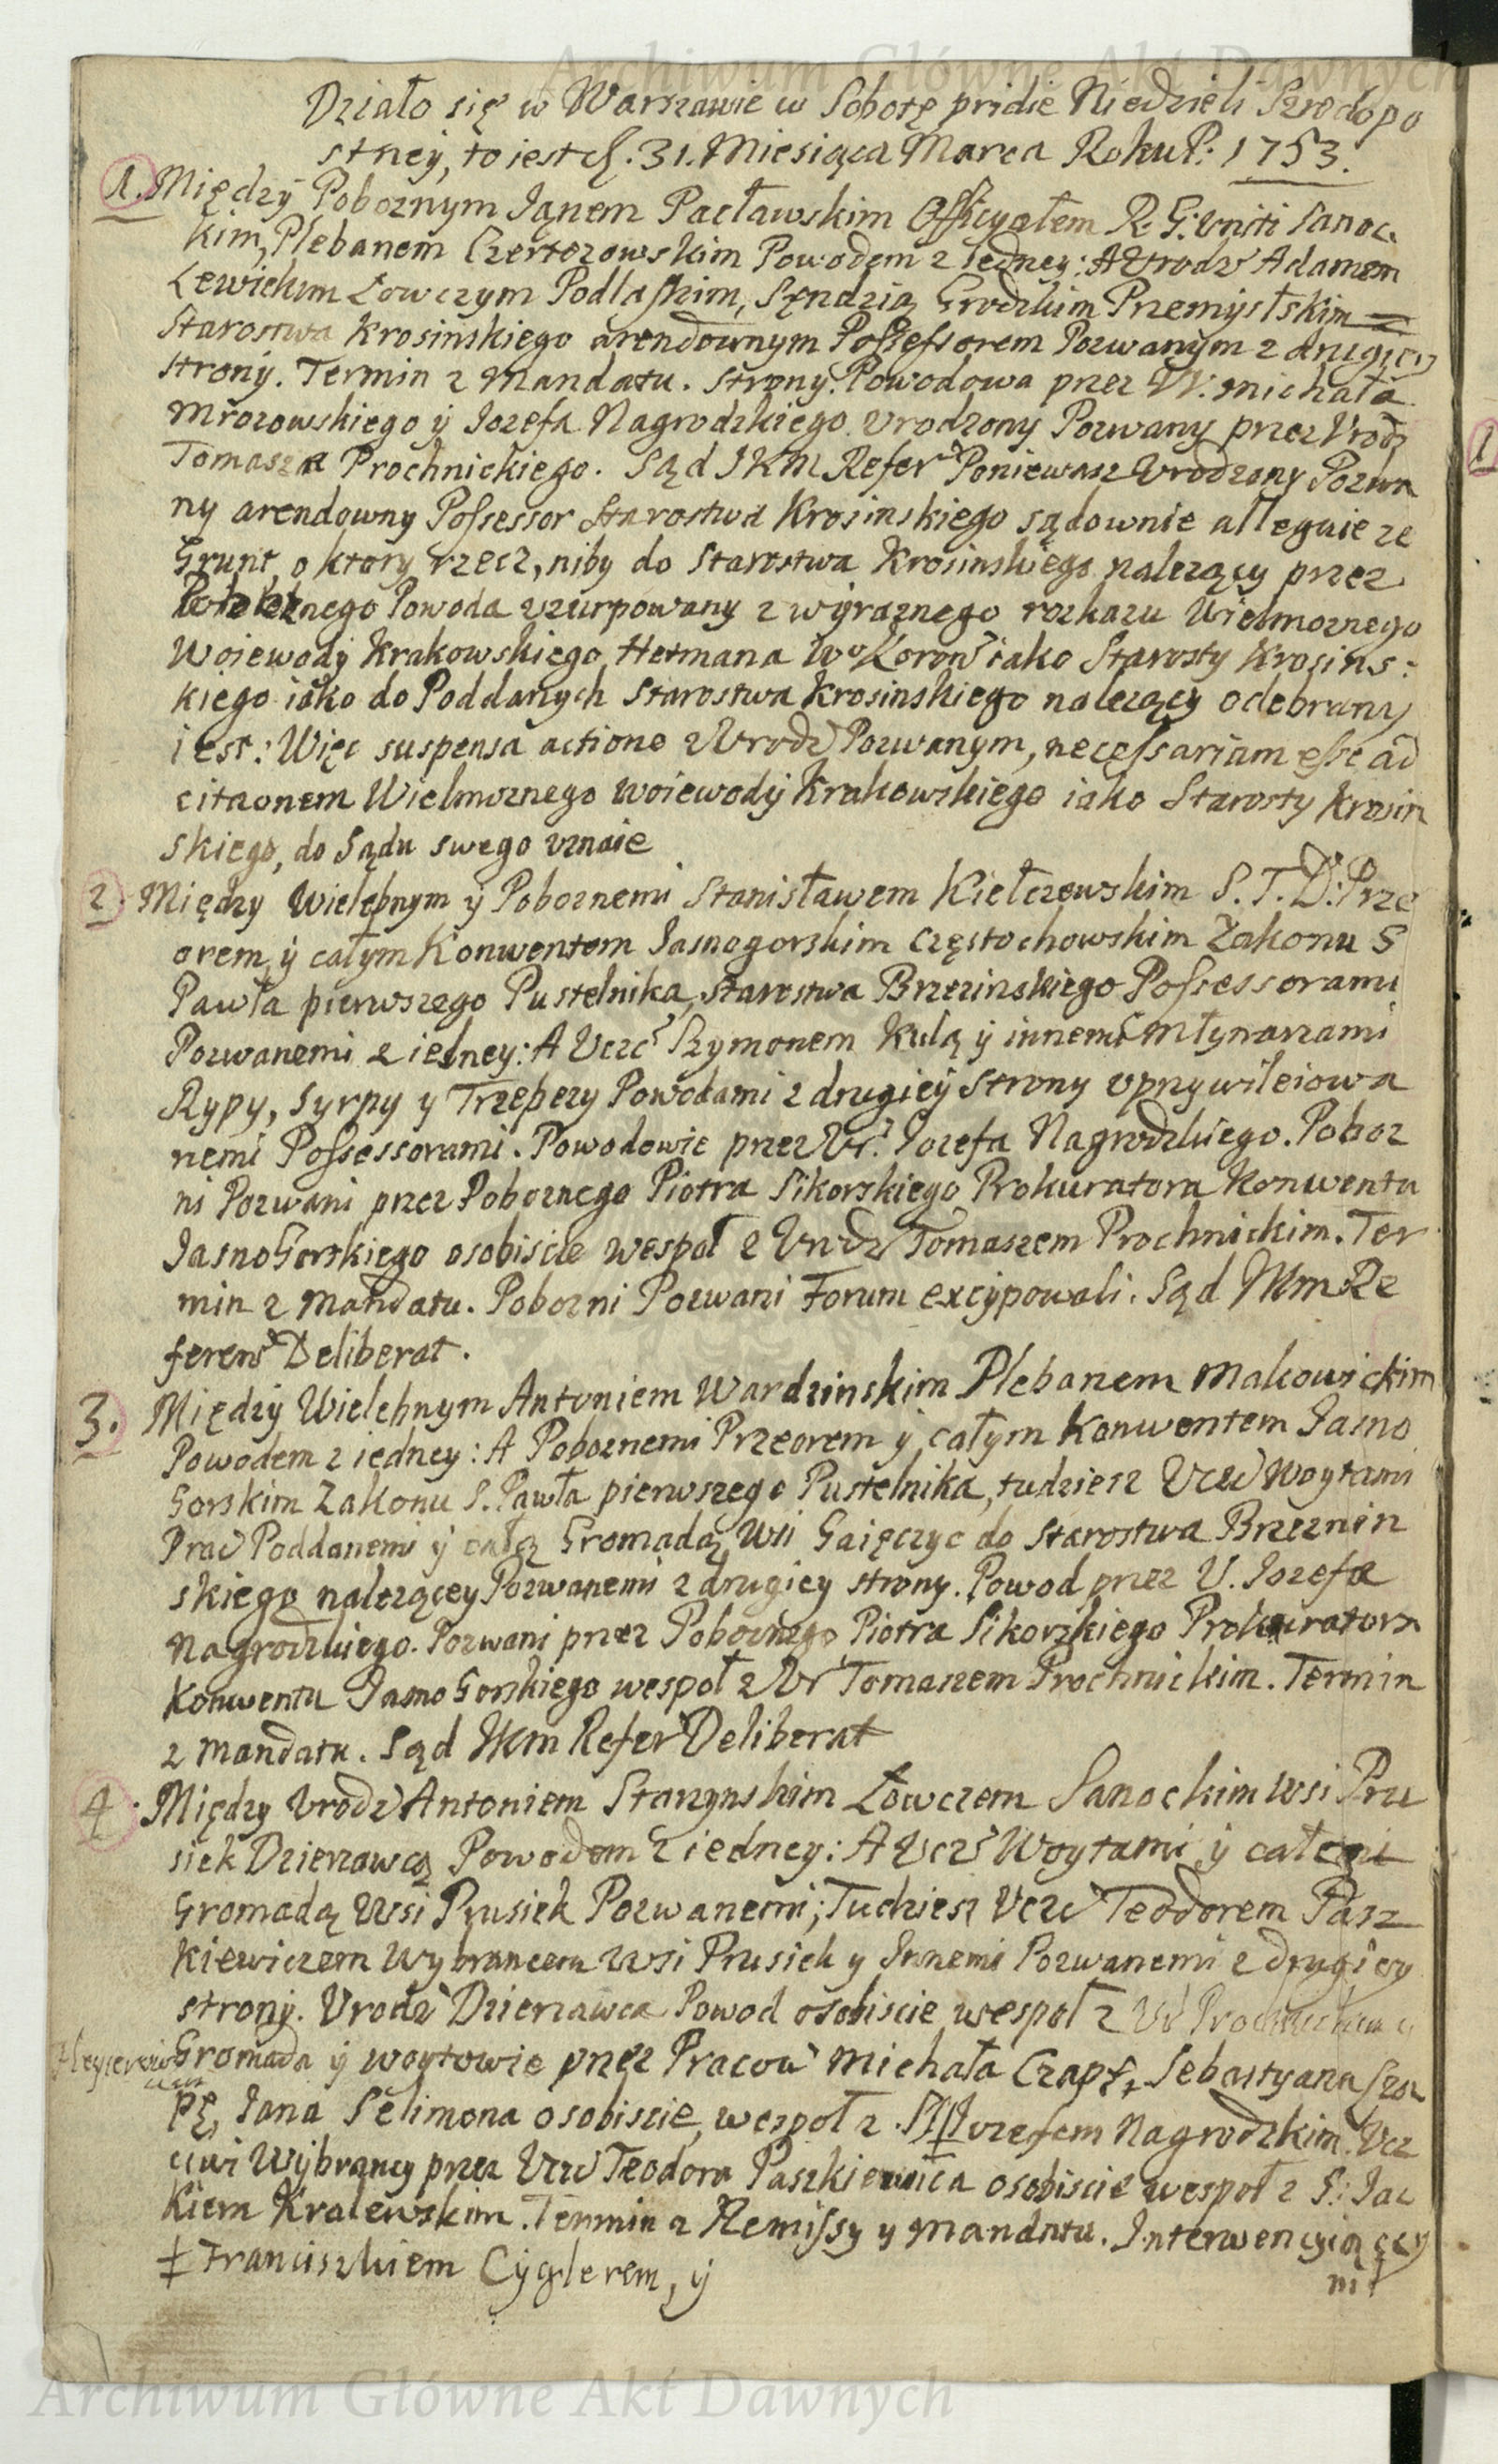 Archiwum Główne Akt Dawnych
Działo się w Warszawie w Sobotę pridie Niedzieli Srzodopo
stney, to iest d. 31. Miesiąca Marca Roku P: 1753.
1. Między Pobożnym Janem Pacławskim Officyałem R. G: Uniti Sanoc
kim, Plebanem Czertezowskim Powodem z iedney: A Urodz Adamem
Lewickim Łowczym Podlaskim, Sęndzią Grodzkim Przemyslskim
Starostwa Krosinskiego arendownym Possessorem Pozwanym z drugiey
strony. Termin z Mandatu. Strony Powodowa przez Ur: Michała
Mrozowskiego y Iozefa Nagrodzkiego. Urodzony Pozwany przez Urodz
Tomasza Prochnickiego. Sąd JKM Refer Poniewasz Urodzony Pozwa
ny arendowny Possessor Starostwa Krosinskiego sądownie alleguie ze
Grunt, o ktory rzecz, niby do Starostwa Krosinskiego nalezący przez
nego Powoda uzurpowany z wyraznego rozkazu Wielmoznego
Woiewody Krakowskiego Hetmana Wo Koron iako Starosty Krosins:
kiego iako do Poddanych Starostwa Krosinskiego nalezący odebrany
iest: Więc suspensa actione z Urodz Pozwanym, necessariam esse ad
citaonem Wielmoznego Woiewody Krakowskiego iako Starosty Krosin
skiego, do Sądu swego uznaie
2. Między Wielebnym y Poboznemi Stanisławem Kiełczewskim S. T. D: Prze
orem, y całym Konwentem Iasnogorskim Częstochowskim Zakonu S
Pawła pierwszego Pustelnika, Starostwa Brzezinskiego Possessorami
Pozwanemi z iedney: A Uczc Szymonem Kulą y innemi Młynarzami
Rypy, Syrpy y Trzepezy Powodami z drugiey strony uprzywileiowa
nemi Possessorami. Powodowie przez Ur. Iozefa Nagrodzkiego. Poboz
ni Pozwani przez Poboznego Piotra Sikorskiego Prokuratora Konwentu
IasnoGorskiego osobiscie wespoł z Urodz Tomaszem Prochnickim. Ter
min z Mandatu. Pobozni Pozwani Forum excypowali. Sąd JKm Re
feren Deliberat.
3. Między Wielebnym Antoniem Wardzinskim Plebanem Makowickim
Powodem z iedney: A Poboznemi Przeorem y całym Konwentem Iasno
Gorskim Zakonu S. Pawła pierwszego Pustelnika, tudziesz Ucw Woytami
Prac Poddanemi y całą Gromadą Wsi Gaięczyc do Starostwa Brzeznin
skiego nalezącey Pozwanemi z drugiey strony. Powod przez U. Iozefa
Nagrodzkiego. Pozwani przez Poboznego Piotra Sikorskiego Prokuratora
Konwentu Iasno Gorskiego wespoł z Ur Tomaszem Prochnickim. Termin
z Mandatu. Sąd JKm Refer Deliberat
4. Między Urodz Antoniem Starzynskim Łowczem Sanockim Wsi Pru
siek Dzierzawcą Powodem z iedney: A Ucz Woytami y całemi
Gromadą Wsi Prusiek Pozwanemi; Tudziesz Ucw Teodorem Pasz
kiewiczem Wybrancem Wsi Prusiek y Innemi Pozwanemi z drugiey
strony. Urodz Dzierzawca Powod osobiscie wespoł z Ur
Gromada y woytowie przez Pracow Michała Czapę, Sebastyana Sza
pę, Iana Selimona osobiscie, wespoł z Iozefem Nagrodzkim. Ucz
ciwi Wybrancy przez Ucw Teodora Paszkiewica osobiscie wespoł z S: Iac
kiem Kralewskim. Termin z Remissy y Mandatu. Interwencyią czy
ni
‡ Franciszkiem Cyglerem, y
Archiwum Główne Akt Dawnych